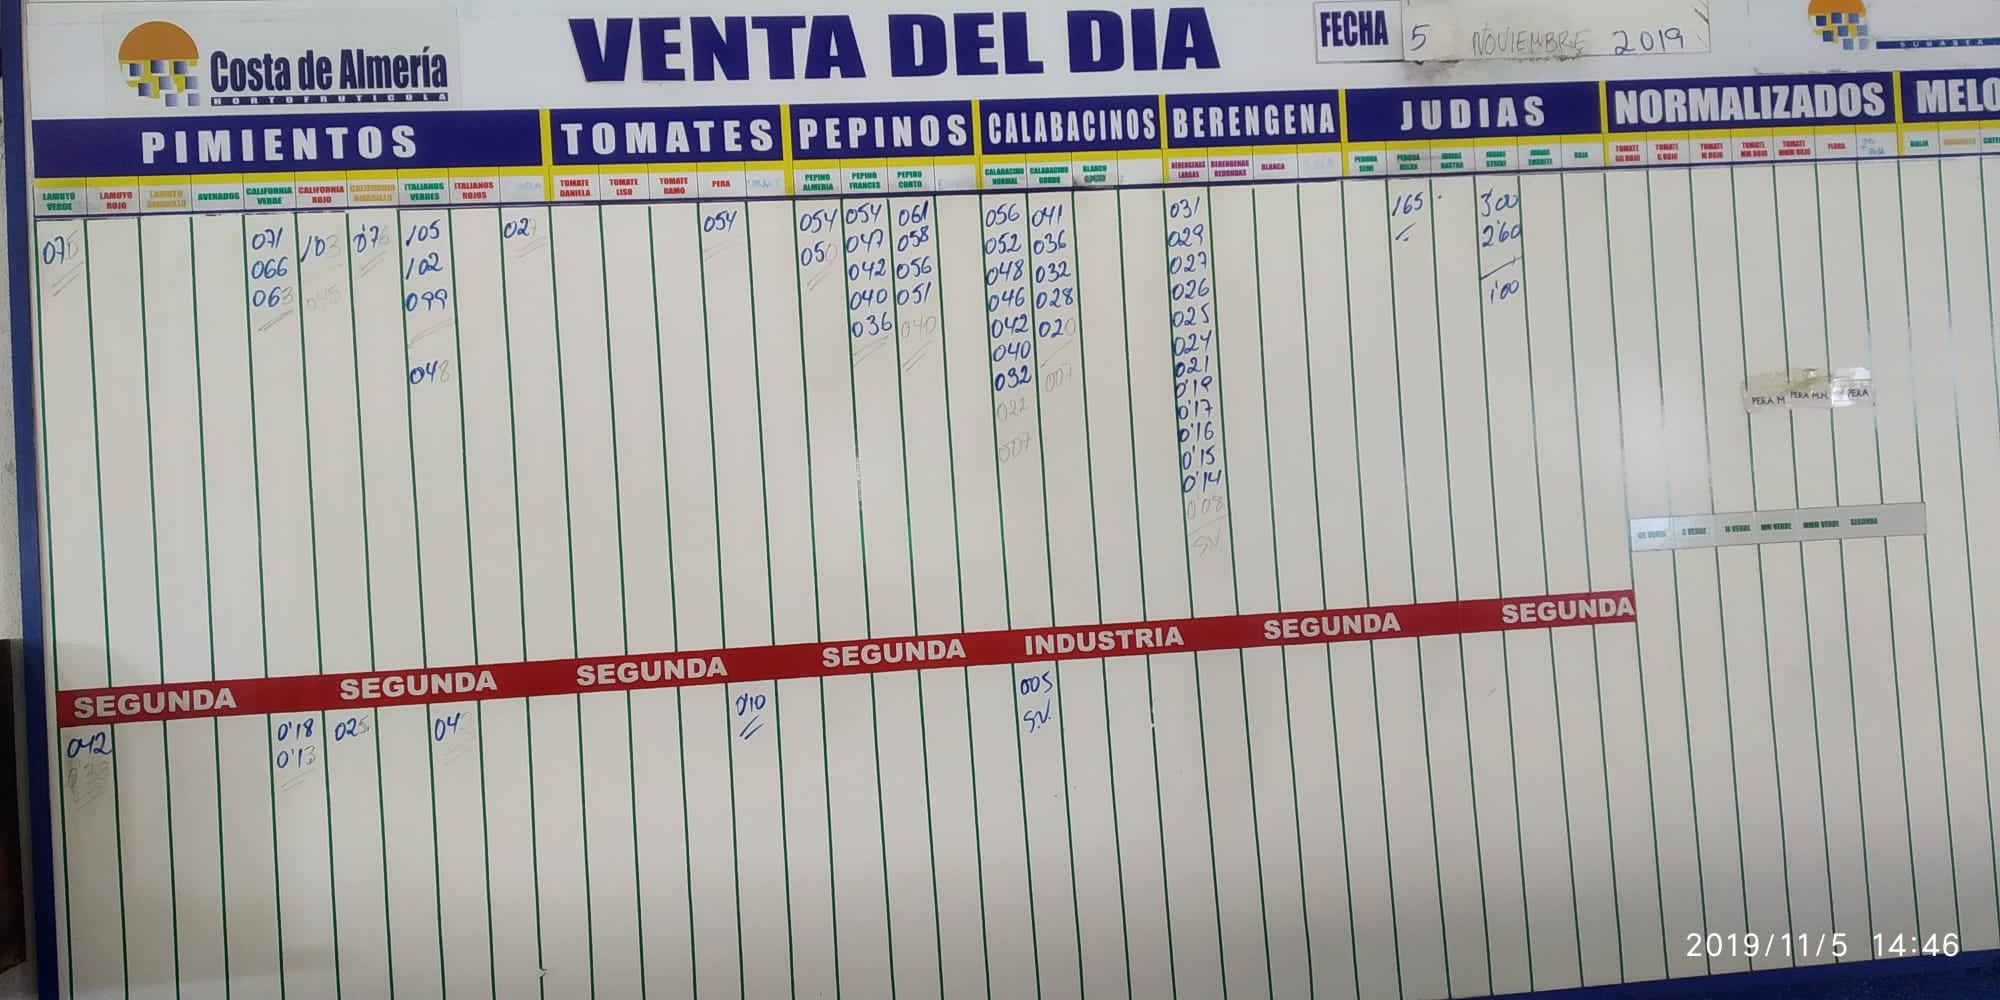 Costa de Almería
HORTOFRUTICOLA
VENTA DEL DIA
FECHA 5 NOVIEMBRE 2019
SUBASTA
PIMIENTOS TOMATES PEPINOS CALABACINOS BERENGENA JUDIAS NORMALIZADOS MELO
LAMUYO VERDE
LAMUYO ROJO
LAMUYO AMARILLO
AVENADOS
CALIFORNIA VERDE
CALIFORNIA ROJO
CALIFORNIA AMARILLO
ITALIANOS VERDES
ITALIANOS ROJOS
TOMATE DANIELA
TOMATE LISO
TOMATE RAMO
PERA
PEPINO ALMERIA
PEPINO FRANCES
PEPINO CORTO
CALABACINO NORMAL
CALABACINO GORDO
BLANCO
BERENGENAS LARGAS
BERENGENAS REDONDAS
BLANCA
PERONA SEMI
PERONA
JUDIAS RASTRA
JUDIAS STRIKE
JUDIAS
ROJA
TOMATE GG ROJO
TOMATE G ROJO
TOMATE M ROJO
TOMATE MM ROJO
TOMATE MMM ROJO
FLORA
GALIA
CATE
071
066
063
103
105
102
099
048
054
054
050
054
047
042
040
036
061
058
056
051
040
056
052
048
046
042
040
032
022
007
041
036
032
028
020
007
031
029
027
026
025
024
021
0'19
0'17
0'16
0'15
0'14
008
S.V.
165
300
2'60
1'00
PERA M
PERA M.M.
PERA
G VERDE
M VERDE
MM VERDE
MMM VERDE
SEGUNDA
SEGUNDA SEGUNDA SEGUNDA SEGUNDA INDUSTRIA SEGUNDA SEGUNDA
042
0'18
0'13
025
010
005
S.V.
2019/11/5 14:46